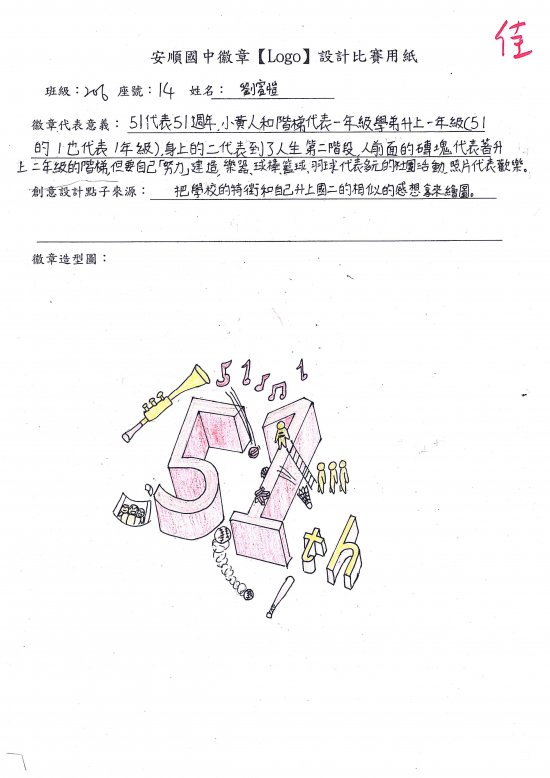 佳
安順國中徽章【Logo】設計比賽用紙
班級：206 座號：14 姓名：劉宣愷
徽章代表意義：51代表51週年,小黃人和階梯代表一年級學弟升上一年級(51
的1也代表1年級),身上的二代表到了人生第二階段,人前面的磚塊代表著升
上二年級的階梯,但要自己「努力」建造,樂器、球棒、籃球、羽球代表多元的社團活動,照片代表歡樂。
創意設計點子來源：把學校的特徵和自己升上國二的相似的感想拿來繪圖。
徽章造型圖：
51
th